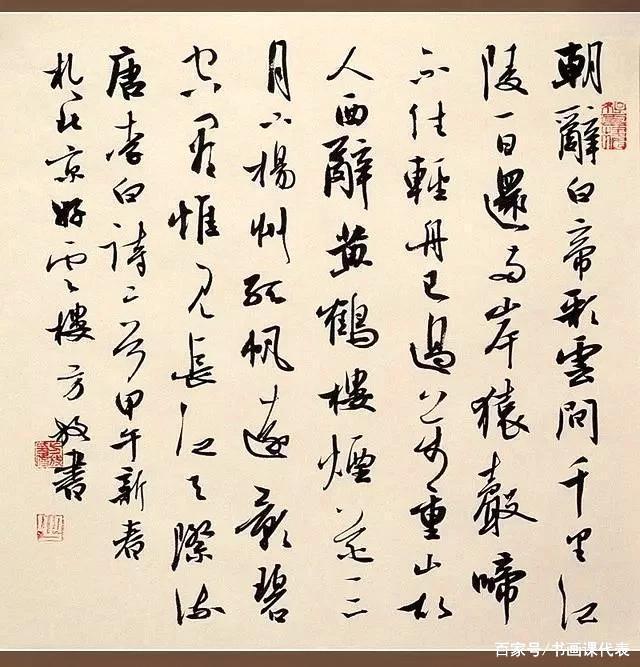 朝辭白帝彩雲間千里江
陵一日還兩岸猿聲啼
不住輕舟已過萬重山故
人西辭黃鶴樓煙花三
月下楊州孤帆遠影碧
空盡惟見長江天際流
唐李白詩二首甲午新春
於北京雲樓方放書
百家号/书画课代表